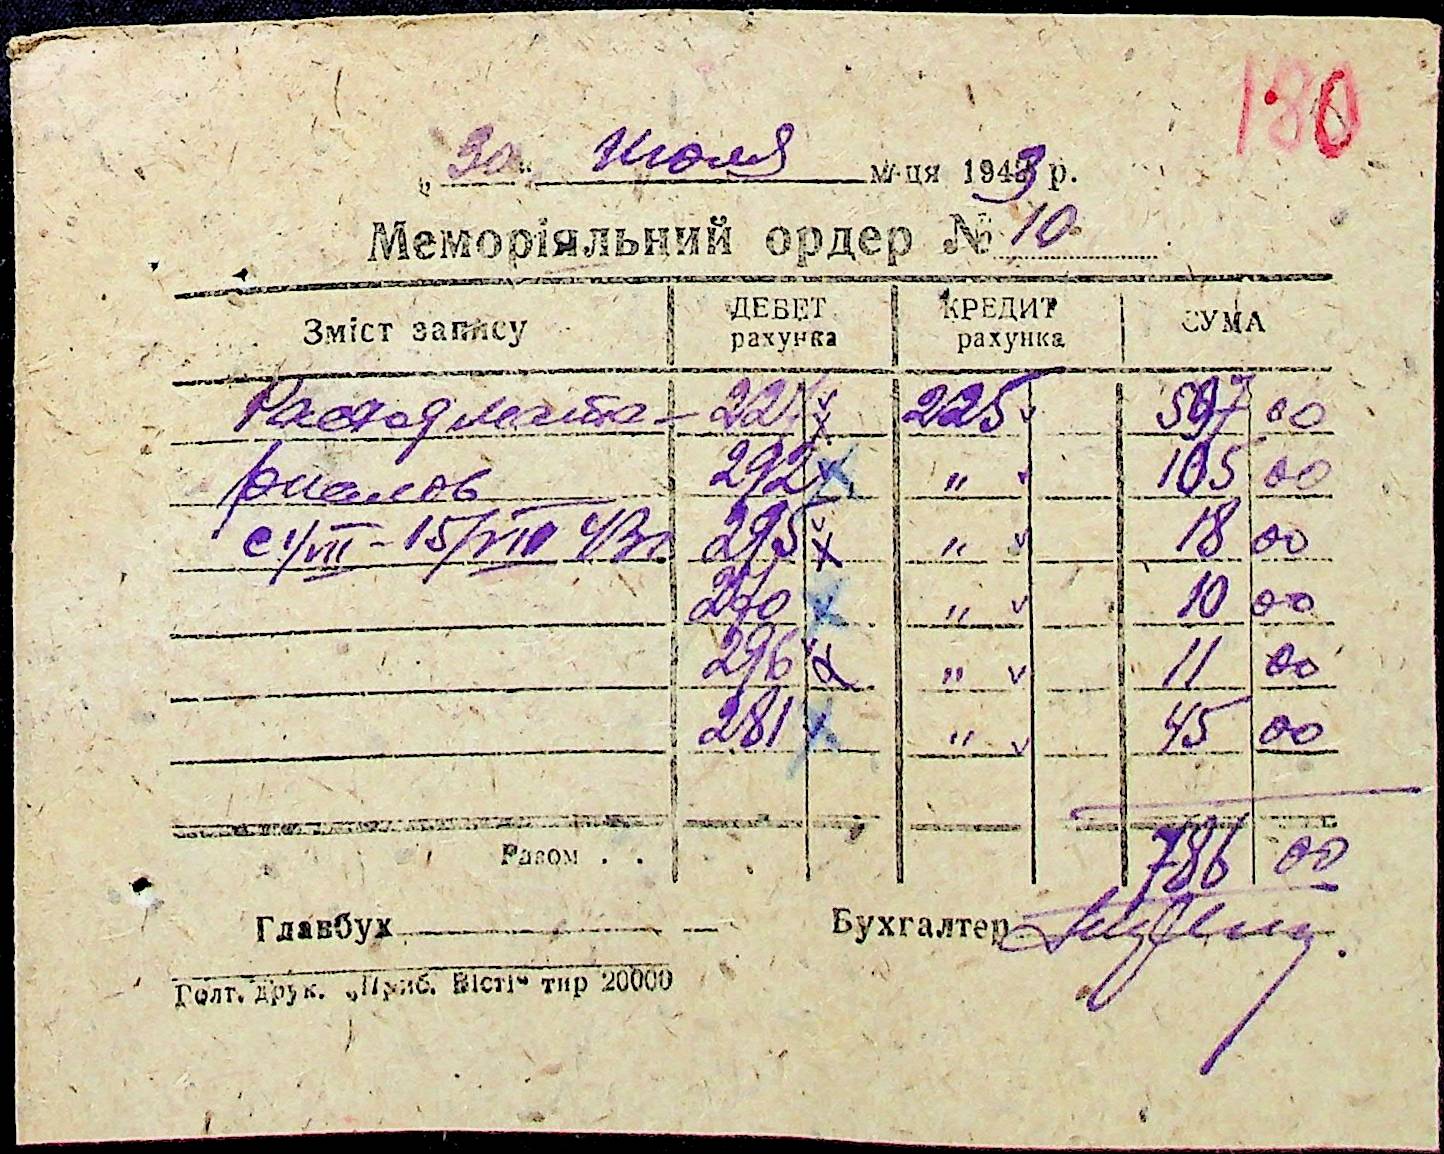 180
„30“ Июля м-ця 1943 р.
Меморіяльний ордер № 10
Зміст запису ДЕБЕТ рахунка КРЕДИТ рахунка СУМА
Расход мате- 22 225 597 00
риалов 292 " 105 00
с 1/VII - 15/VII 43г. 295 " 18 00
290 " 10 00
296 " 11 00
281 " 45 00
Разом . . 786 00
Главбух Бухгалтер
Голт. друк. „Приб. Вісті“ тир 20000